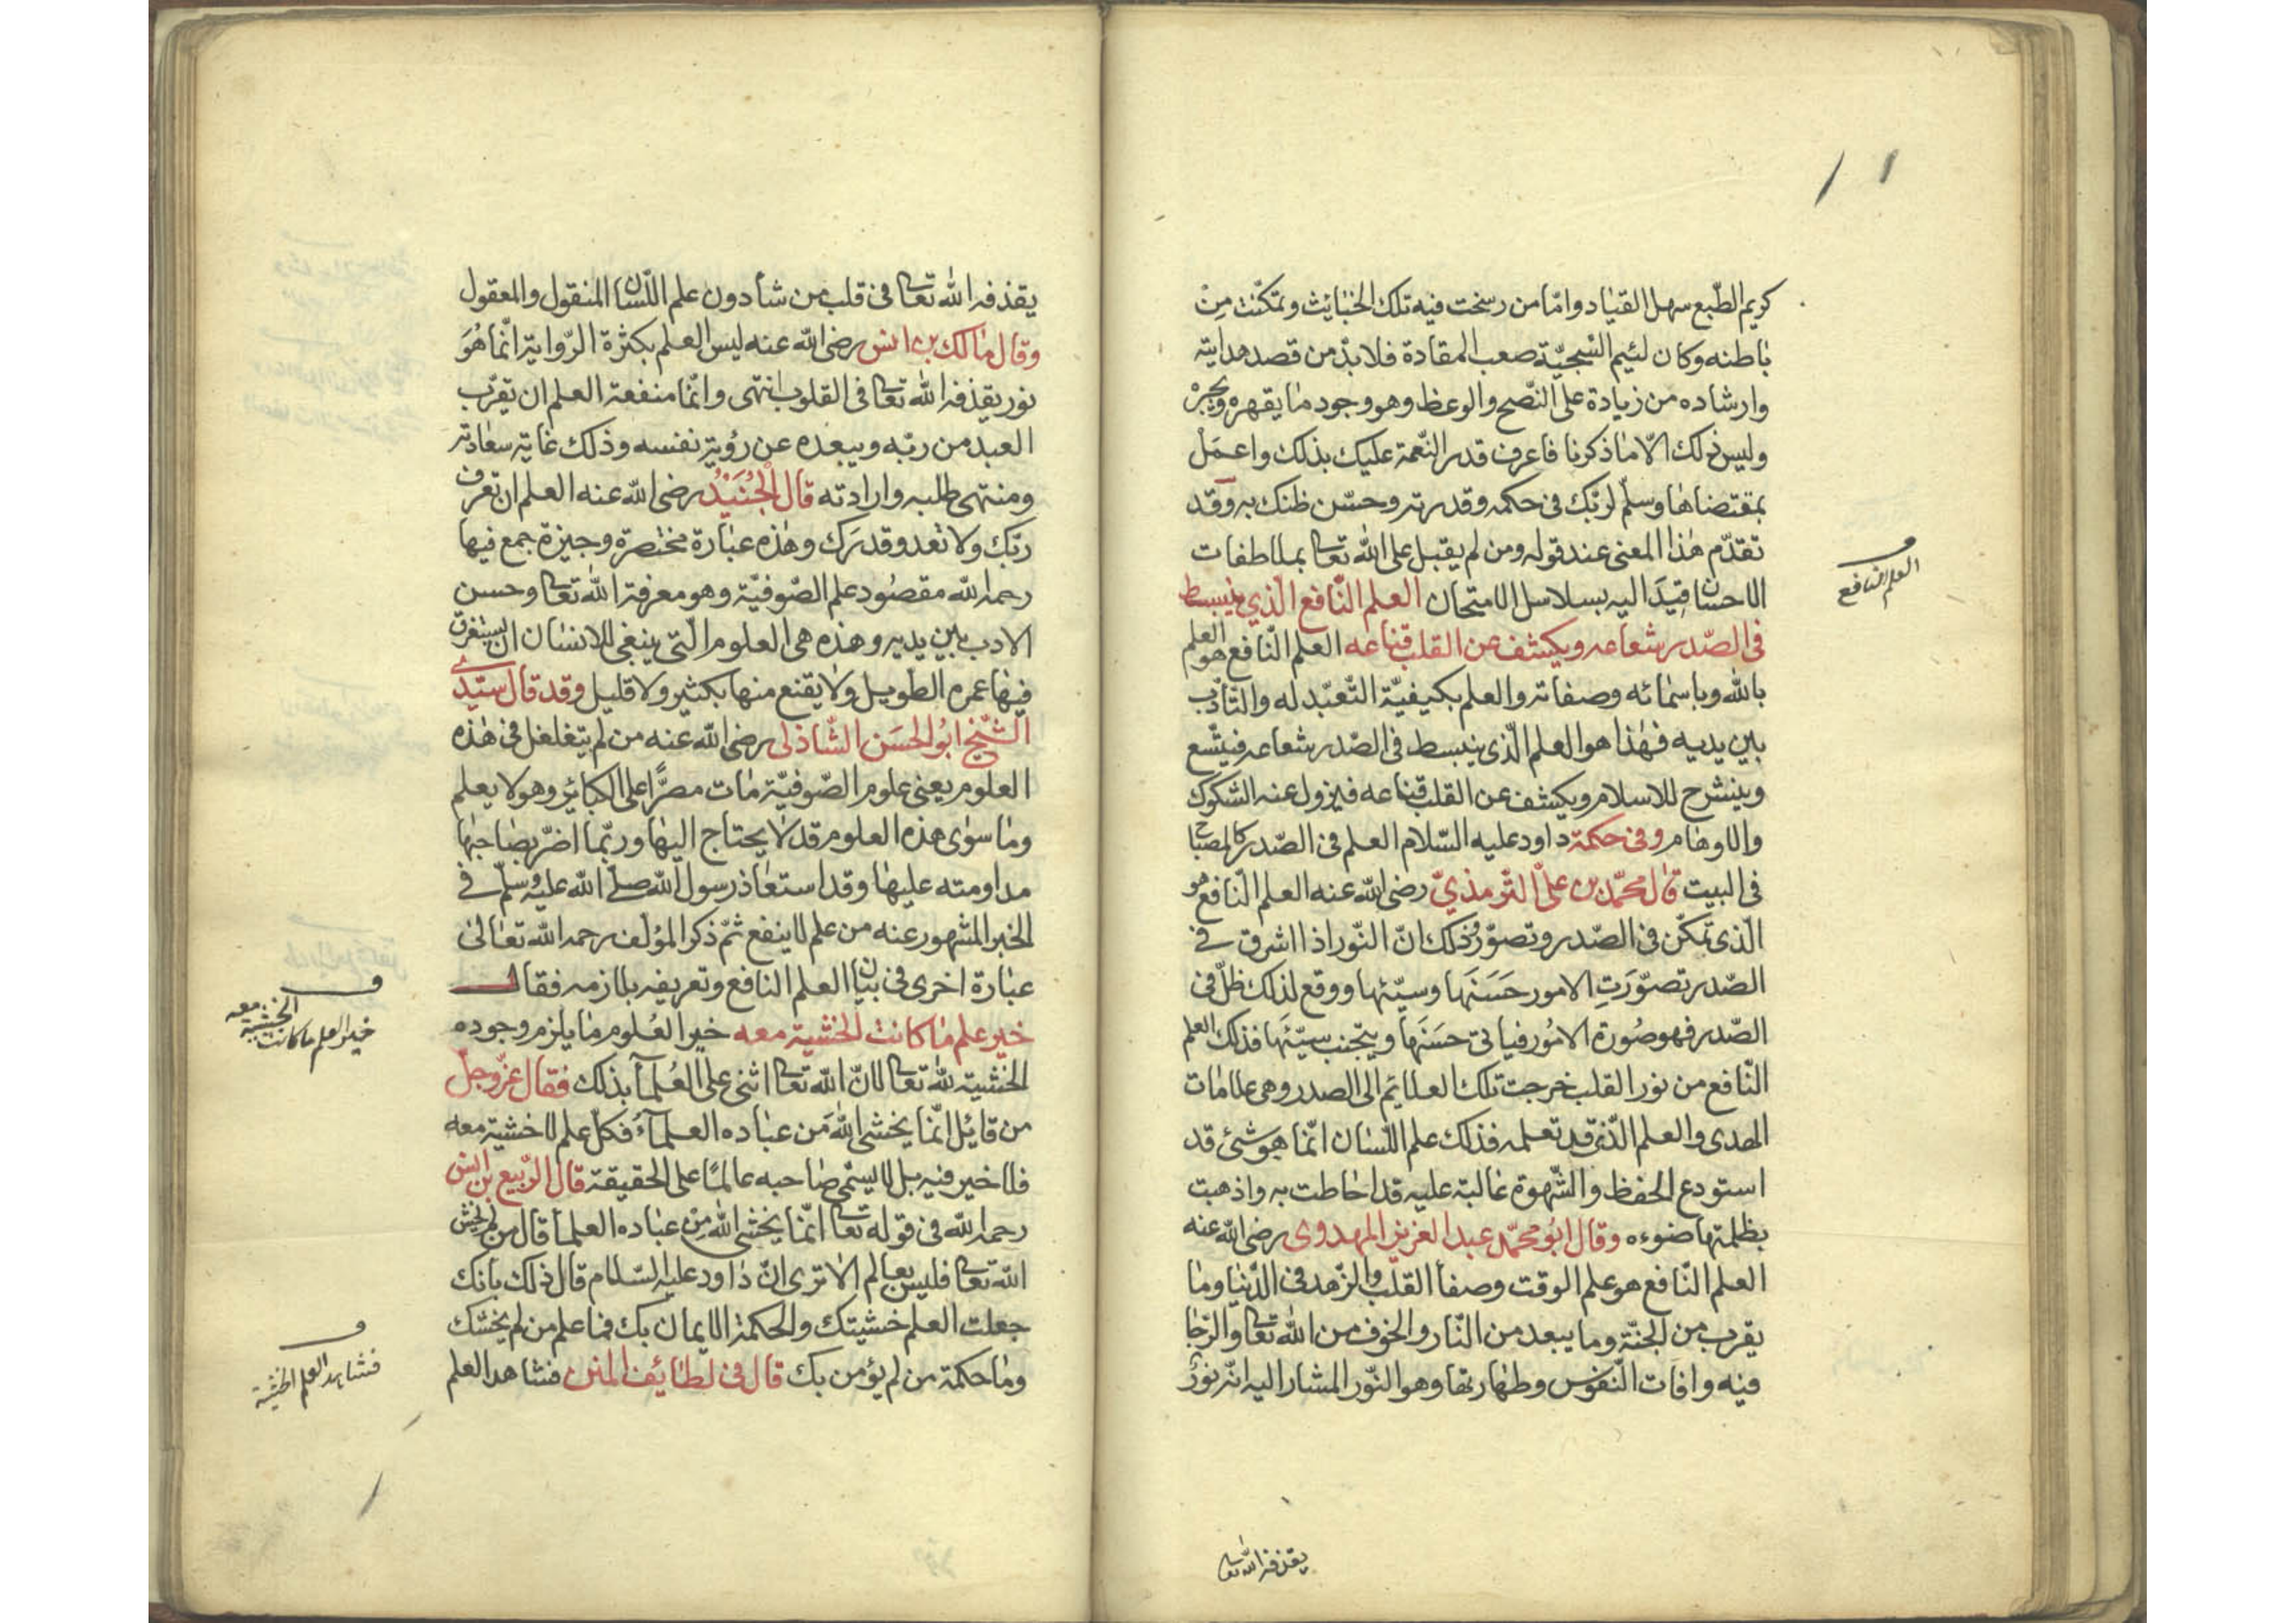 كريم الطّبع سهل القياد وامّا من رسخت فيه تلك الخبائث وتمكّنت مِنْ
باطنه وكان لئيم السّجيّة صعب المقادة فلا بدّ من قصد هدايته
وارشاده من زيادة على النّصح والوعظ وهو وجود ما يقهره ويجبره
وليس ذلك الّا ما ذكرنا فاعرف قدر النّعمة عليك بذلك واعمَلْ
بمقتضاها وسلّم لربّك في حكمه وقدرته وحسّن ظنك به وقد
تقدّم هذا المعنى عند قوله ومن لم يقبل على الله تعالى بملاطفات
الاحسان قِيدَ اليه بسلاسل الامتحان العلم النّافع الّذي ينبسط
في الصّدر شعاعه ويكشف عن القلب قناعه العلم النّافع هو العلم
العلم النافع
بالله وباسمائه وصفاته والعلم بكيفيّة التّعبّد له والتّأدّب
بين يديه فهذا هو العلم الّذي ينبسط في الصّدر شعاعه فيتّسع
وينشرح للاسلام ويكشف عن القلب قناعه فيزول عنه الشكوك
والاوهام وفي حكمة داود عليه السّلام العلم في الصّدر كالمصباح
في البيت قال محمّد بن علىّ التّرمذيّ رضى الله عنه العلم النّافع هو
الّذى تمكّن في الصّدر وتصوّر وذلك انّ النّور اذا اشرق في
الصّدر تصوّرَتِ الامور حَسَنَها وسيّئها ووقع لذلك ظلّ في
الصّدر فهو صُورة الامُور فياتى حَسَنَها ويتجّنب سيّئَها فذلك العلم
النّافع من نور القلب خرجت تلك العلائم الى الصدر وهي علامات
الهدى والعلم الّذى قد تعلمه فذلك علم اللّسان انّما هو شئ قد
استودع الحفظ والشّهوة غالبة عليه قد احاطت به واذهبت
بظلمتها ضوءه وقال ابُو محمّد عبد العزيز المهدوى رضى الله عنه
العلم النّافع هو علم الوقت وصفأ القلب والزّهد في الدّنيا وما
يقرب من الجنّة وما يبعد من النّار والخوف من الله تعالى والرّجا
فيه وافات النّفوس وطهارتها وهو النّور المشار اليه انّه نورٌ
يقذفه الله تعالى
يقذفه الله تعالى في قلب من شأ دون علم اللّسان المنقول والمعقول
وقال مالك بن انس رضى الله عنه ليس العلم بكثرة الرّواية انّما هُوَ
نور يقذفه الله تعالى في القلوب انتهى وانّما منفعة العلم ان تقرّب
العبد من ربّه ويبعده عن رؤية نفسه وذلك غاية سعادته
ومنتهى طلبه وارادته قال الْجُنَيْدُ رضى الله عنه العلم ان تعرف
ربّك ولا تعدو قدرك وهذه عبارة مختصرة وجيزة جمع فيها
رحمه الله مقصود علم الصّوفيّة وهو معرفة الله تعالى وحسن
الادب بين يديه وهذه هي العلوم الّتى ينبغى للانسان ان يستغرق
فيها عمره الطويل ولا يقنع منها بكثير ولا قليل وقد قال سيّدى
الشّيخ ابُو الحسَن الشّاذلى رضى الله عنه من لم يتغلغل في هذه
العلوم يعنى علوم الصّوفيّة مات مصرًّا على الكبائر وهو لا يعلم
وما سوى هذه العلوم قد لا يحتاج اليها وربّما اضرّ بصاحبها
مداومته عليها وقد استعاذ رسول الله صلّى الله عليه وسلّم في
الخبر المشهور عنه من علم لا ينفع ثمّ ذكر المؤلف رحمه الله تعالى
عبارة اخرى في بيان العلم النافع وتعريفه بلازمه فقال
خير علم ما كانت الخشية معه خير العُلوم ما يلزم وجوده
خير العلم ما كانت الخشية معه
الخشية لله تعالى لانّ الله تعالى اثنى على العُلمآ بذلك فقال عزّ وجلّ
من قائل انّما يخشى اللهَ من عباده العلمآءُ فكلّ علم لا خشية معه
فلا خير فيه بل لا يسمّى صاحبه عالمًا على الحقيقة قال الرّبيع بن انس
رحمه الله في قوله تعالى انّما يخشى الله من عباده العلمأ قال من لم يخش
الله تعالى فليس بعالم الا ترى انّ داود عليه السّلام قال ذلك بانك
جعلت العلم خشيتك والحكمة الايمان بك فما علم من لم يخشك
وما حكمة من لم يؤمن بك قال في لطائف المنن فشاهد العلم
فشاهد العلم الخشية